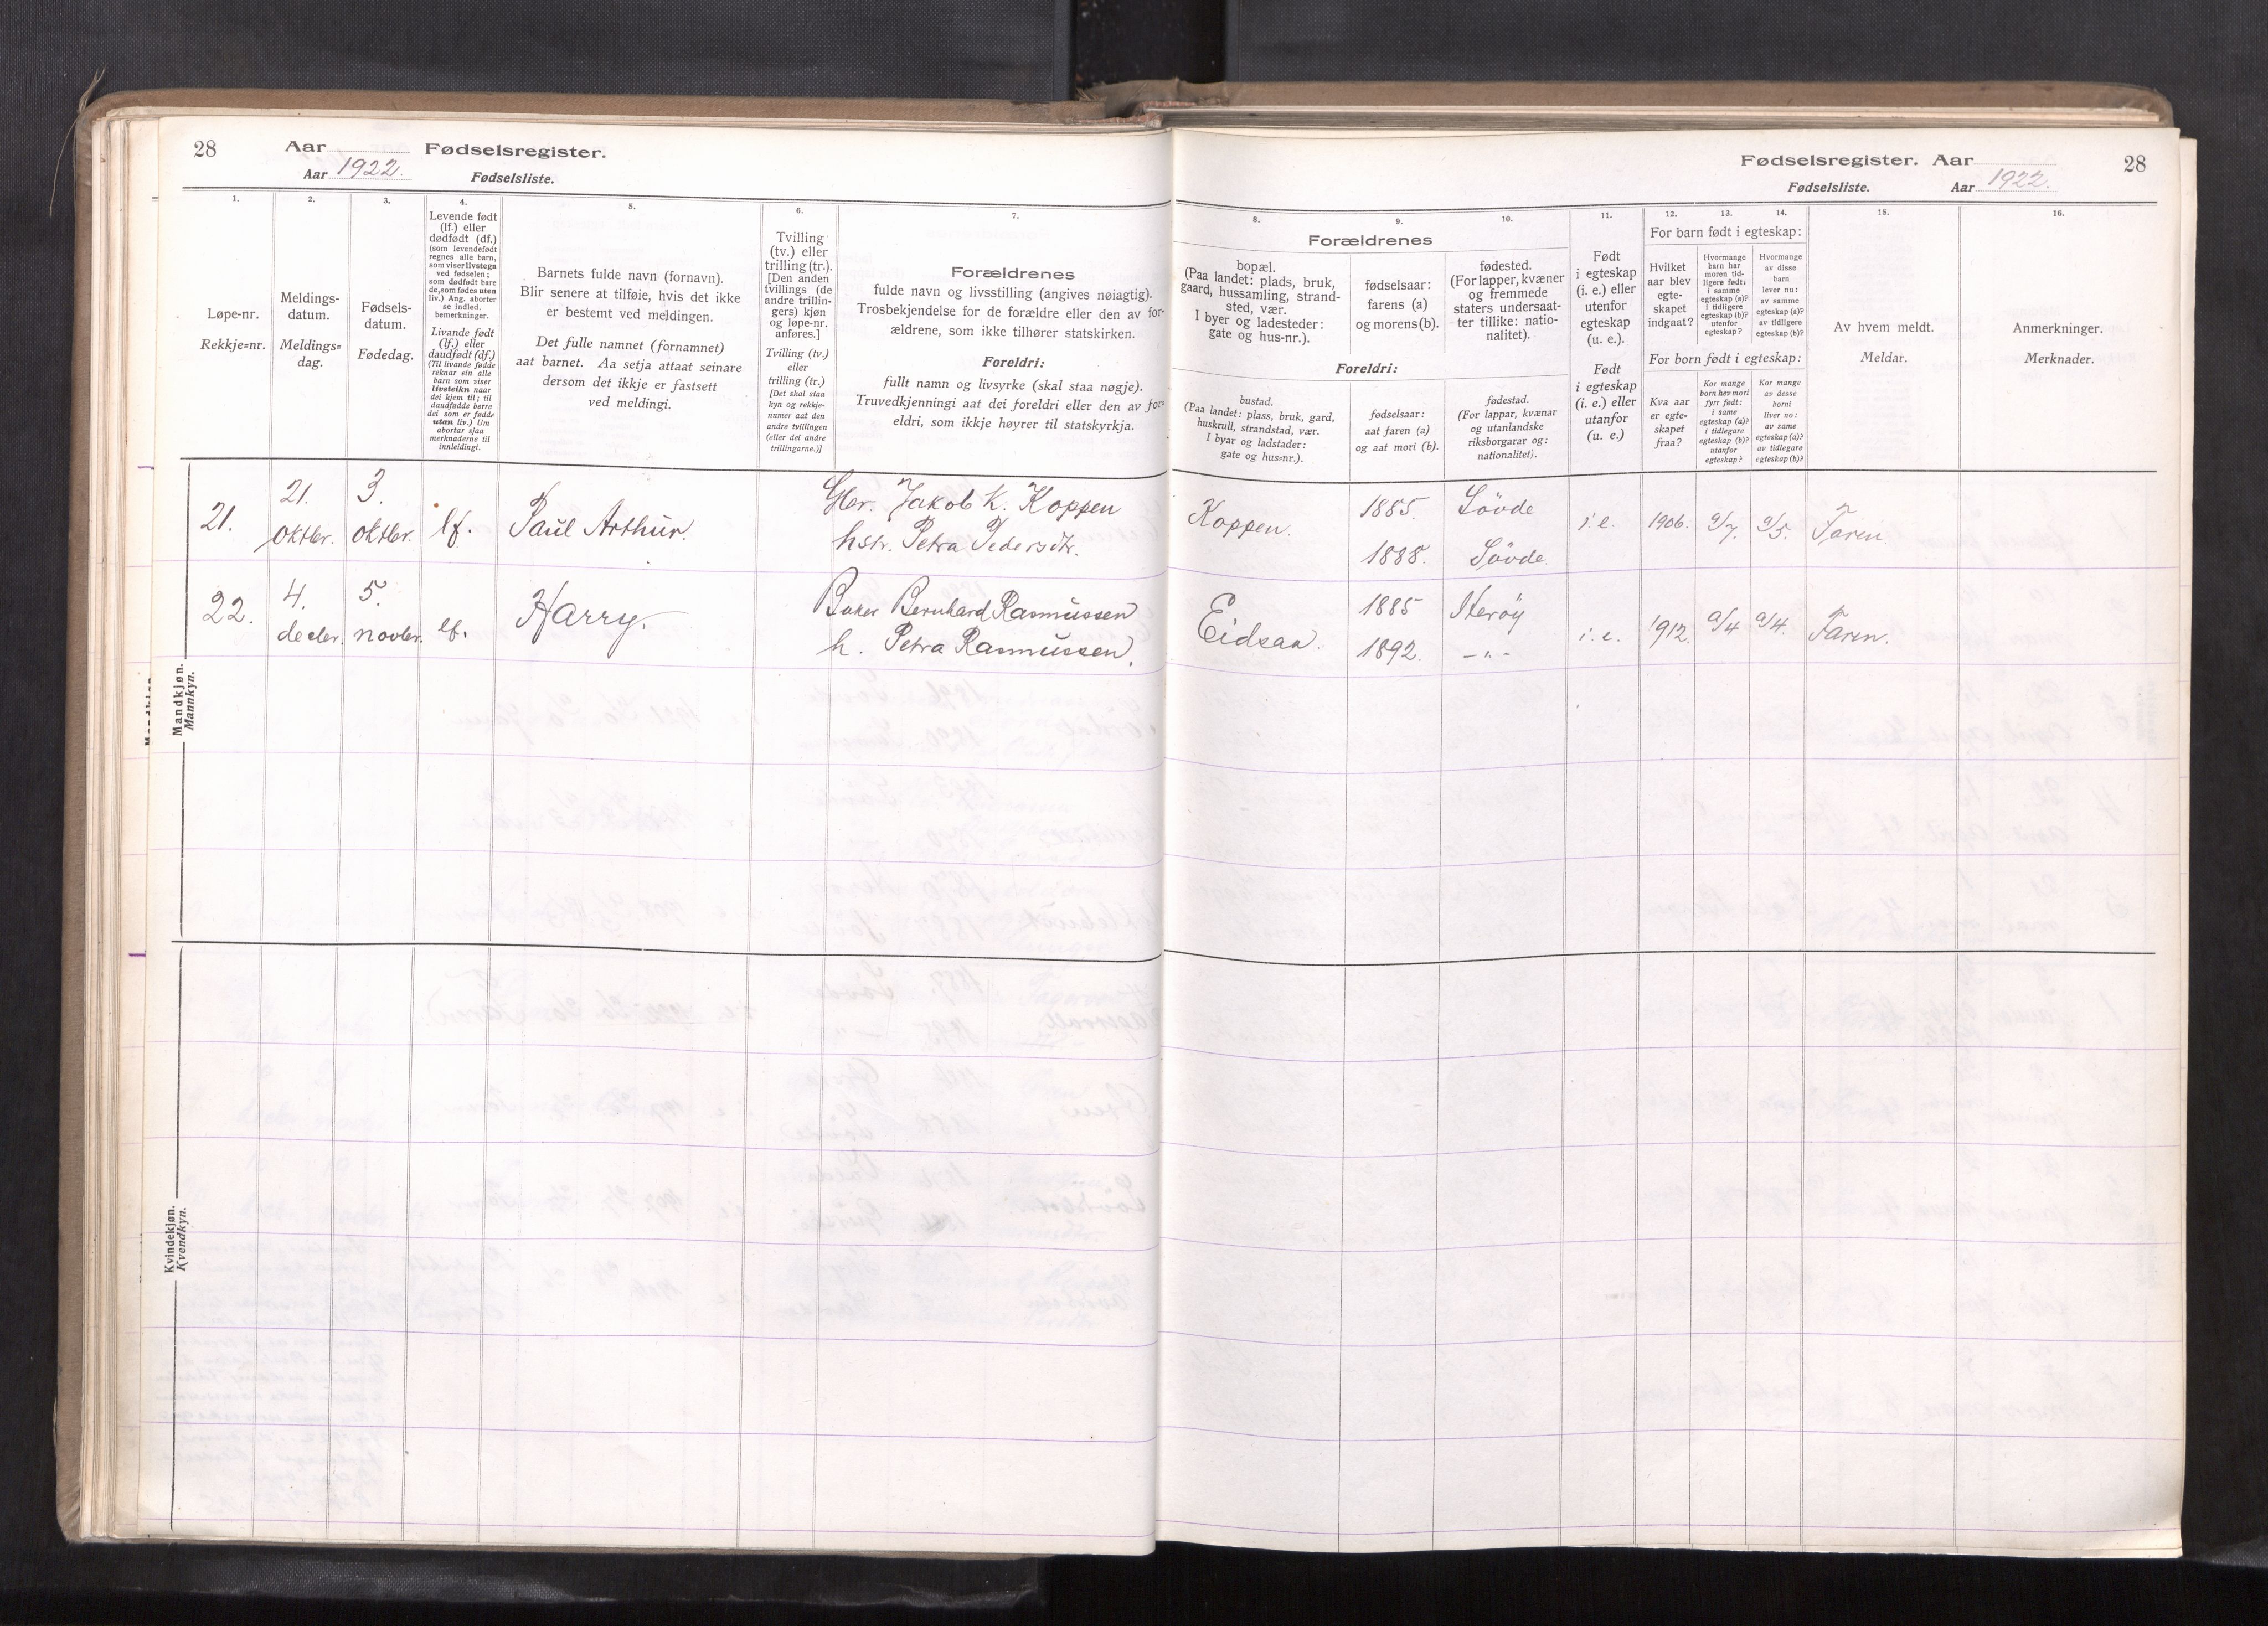 28 Aar Fødselsregister.
Aar 1922. Fødselsliste.
1. 2. 3. 4. 5. 6. 7.
Løpe-nr.
Rekkje=nr.
Meldings-
datum.
Meldings=
dag.
Fødsels-
datum.
Fødedag.
Levende født
(lf.) eller
dødfødt (df.)
(som levendefødt
regnes alle barn,
som viser livstegn
ved fødselen;
som dødfødt bare
de, som fødes uten
liv.) Ang. aborter
se indled.
bemerkninger.
Livande født
(lf.) eller
daudfødt (df.)
(Til livande fødde
reknar ein alle
barn som viser
livsteikn naar
dei kjem til; til
daudfødde berre
dei som er fødde
utan liv.) Um
abortar sjaa
merknaderne til
innleidingi.
Barnets fulde navn (fornavn).
Blir senere at tilføie, hvis det ikke
er bestemt ved meldingen.
Det fulle namnet (fornamnet)
aat barnet. Aa setja attaat seinare
dersom det ikkje er fastsett
ved meldingi.
Tvilling
(tv.) eller
trilling (tr.).
[Den anden
tvillings (de
andre trillin-
gers) kjøn
og løpe-nr.
anføres.]
Tvilling (tv.)
eller
trilling (tr.)
[Det skal staa
kyn og rekkje-
numer aat den
andre tvillingen
(eller dei andre
trillingarne.)]
Forældrenes
fulde navn og livsstilling (angives nøiagtig).
Trosbekjendelse for de forældre eller den av for-
ældrene, som ikke tilhører statskirken.
Foreldri:
fullt namn og livsyrke (skal staa nøgje).
Truvedkjenningi aat dei foreldri eller den av for=
eldri, som ikkje høyrer til statskyrkja.
Mandkjøn.
Mannkyn.
21. 21. oktbr. 3. oktbr. lf. Paul Arthur. Gbr. Jakob K. Koppen
hstr. Petra Pedersdtr.
22. 4. decbr. 5. novbr. lf. Harry. Baker Bernhard Rasmussen
h. Petra Rasmussen.
Kvindekjøn.
Kvendkyn.
Fødselsregister. Aar 28
Fødselsliste. Aar 1922.
8. 9. 10. 11. 12. 13. 14. 15. 16.
Forældrenes
bopæl.
(Paa landet: plads, bruk,
gaard, hussamling, strand-
sted, vær.
I byer og ladesteder:
gate og hus-nr.).
fødselsaar:
farens (a)
og morens (b).
fødested.
(For lapper, kvæner
og fremmede
staters undersaat-
ter tillike: natio-
nalitet).
Foreldri:
bustad.
(Paa landet: plass, bruk, gard,
huskrull, strandstad, vær.
I byar og ladstader:
gate og hus=nr.).
fødselsaar:
aat faren (a)
og aat mori (b).
fødestad.
(For lappar, kvænar
og utanlandske
riksborgarar og:
nationalitet).
Født
i egteskap
(i. e.) eller
utenfor
egteskap
(u. e.).
Født
i egteskap
(i. e.) eller
utanfor
(u. e.)
For barn født i egteskap:
Hvilket
aar blev
egte-
skapet
indgaat?
Hvormange
barn har
moren tid-
ligere født:
i samme
egteskap (a)?
i tidligere
egteskap (b)?
utenfor
egteskap?
Hvormange
av disse
barn
lever nu:
av samme
egteskap (a)?
av tidligere
egteskap (b)?
For born født i egteskap:
Kva aar
er egte=
skapet
fraa?
Kor mange
born hev mori
fyrr født:
i same
egteskap (a)?
i tidlegare
egteskap (b)?
utanfor
egteskap?
Kor mange
av desse
borni
liver no:
av same
egteskap (a)?
av tidlegare
egteskap (b)?
Av hvem meldt.
Meldar.
Anmerkninger.
Merknader.
Koppen. 1885. Søvde i.e. 1906. a/7. a/5. Faren.
1888. Søvde
Eidsaa. 1885 Herøy i.e. 1912. a/4 a/4. Faren.
1892. -"-